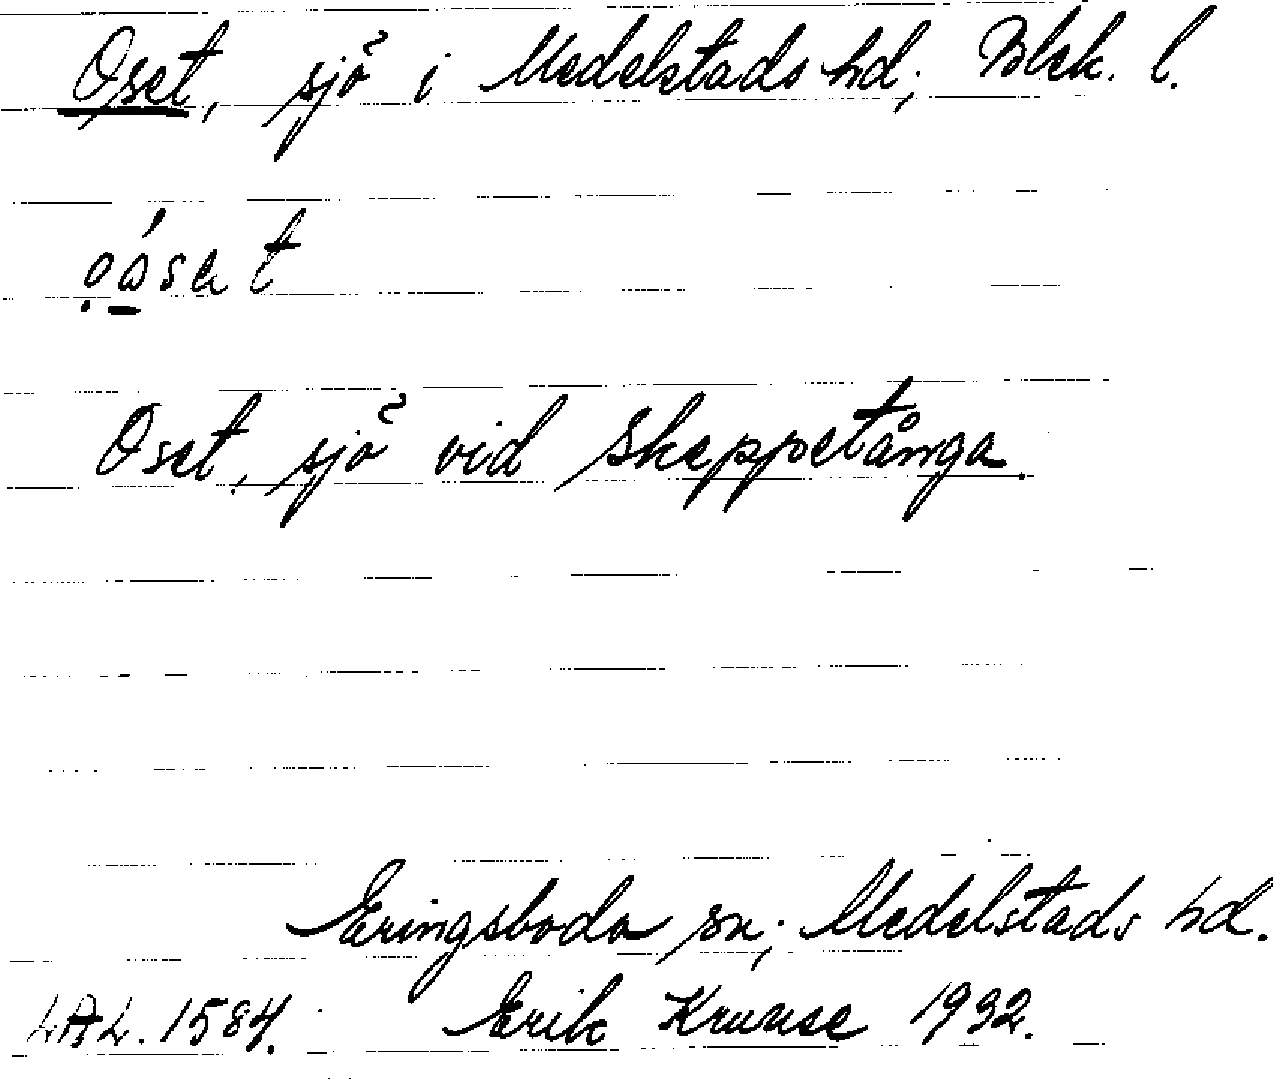 Oset, sjö i Medelstads hd; Blek. l.
Oset, sjö vid Skeppetånga.
Eringsboda sn; Medelstads hd.
LAL. 1584. Erik Kruuse 1932.